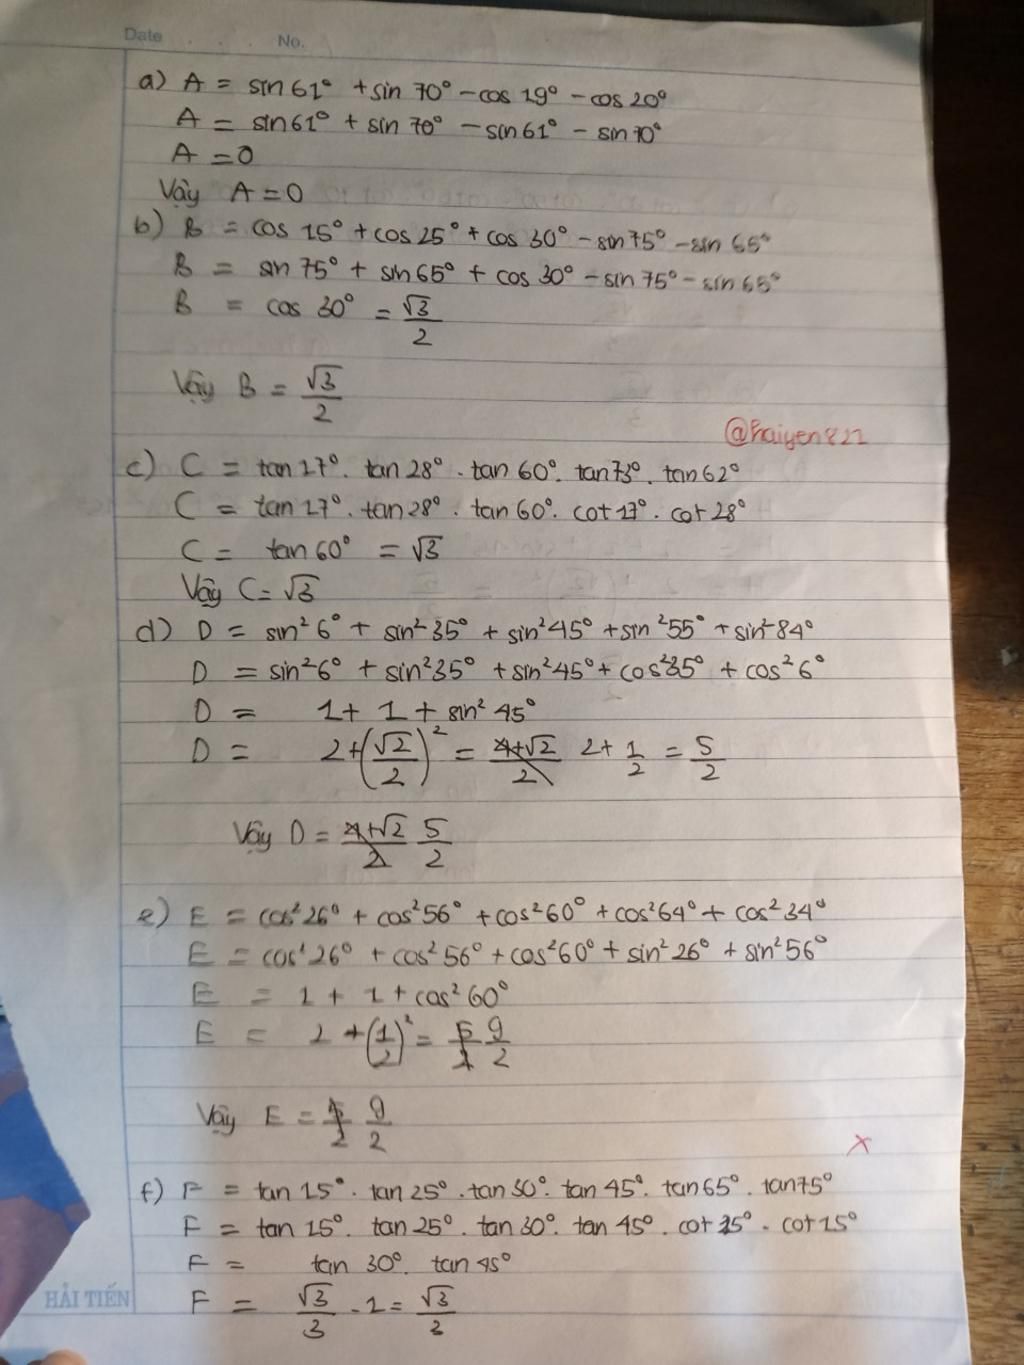 Date No.
a) A = sin 61° + sin 70° - cos 19° - cos 20°
A = sin 61° + sin 70° - sin 61° - sin 70°
A = 0
Vậy A = 0
b) B = cos 15° + cos 25° + cos 30° - sin 75° - sin 65°
B = sin 75° + sin 65° + cos 30° - sin 75° - sin 65°
B = cos 30° = √3/2
Vậy B = √3/2
@haiyen822
c) C = tan 17° . tan 28° . tan 60° . tan 73° . tan 62°
C = tan 17° . tan 28° . tan 60° . cot 17° . cot 28°
C = tan 60° = √3
Vậy C = √3
d) D = sin² 6° + sin² 35° + sin² 45° + sin² 55° + sin² 84°
D = sin² 6° + sin² 35° + sin² 45° + cos² 35° + cos² 6°
D = 1 + 1 + sin² 45°
D = 2 + (√2/2)² = 4+√2/2 2 + 1/2 = 5/2
Vậy D = 4+√2/2 5/2
e) E = cos² 26° + cos² 56° + cos² 60° + cos² 64° + cos² 34°
E = cos² 26° + cos² 56° + cos² 60° + sin² 26° + sin² 56°
E = 1 + 1 + cos² 60°
E = 2 + (1/2)² = 9/2
Vậy E = 9/2
x
f) F = tan 15° . tan 25° . tan 30° . tan 45° . tan 65° . tan 75°
F = tan 15° . tan 25° . tan 30° . tan 45° . cot 25° . cot 15°
F = tan 30° . tan 45°
HẢI TIẾN F = √3/3 . 1 = √3/3